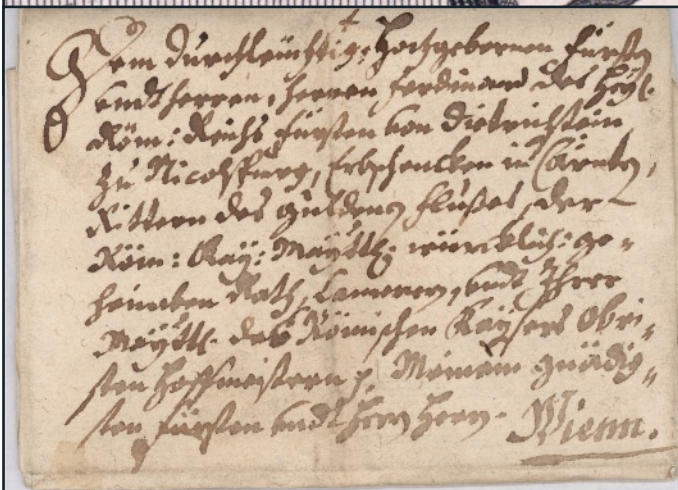 Dem Durchleüchtig: Hochgebornen Fürsten
undt Herren, Herren Ferdinand des Heyl.
Röm: Reichs Fürsten von Dietrichstein
zu Nicolspurg, Erbschencken in Cärnten,
Rittern des guldenen Flußes, der
Röm: Kay: Mayttl: würcklich: ge„
heimben Rath, Camerern, undt Ihrer
Mayttl. des Römischen Kaysers Obri„
sten Hoffmeistern p. Meinem gnädig„
sten Fürsten undt Herrn Herrn.
Wienn.